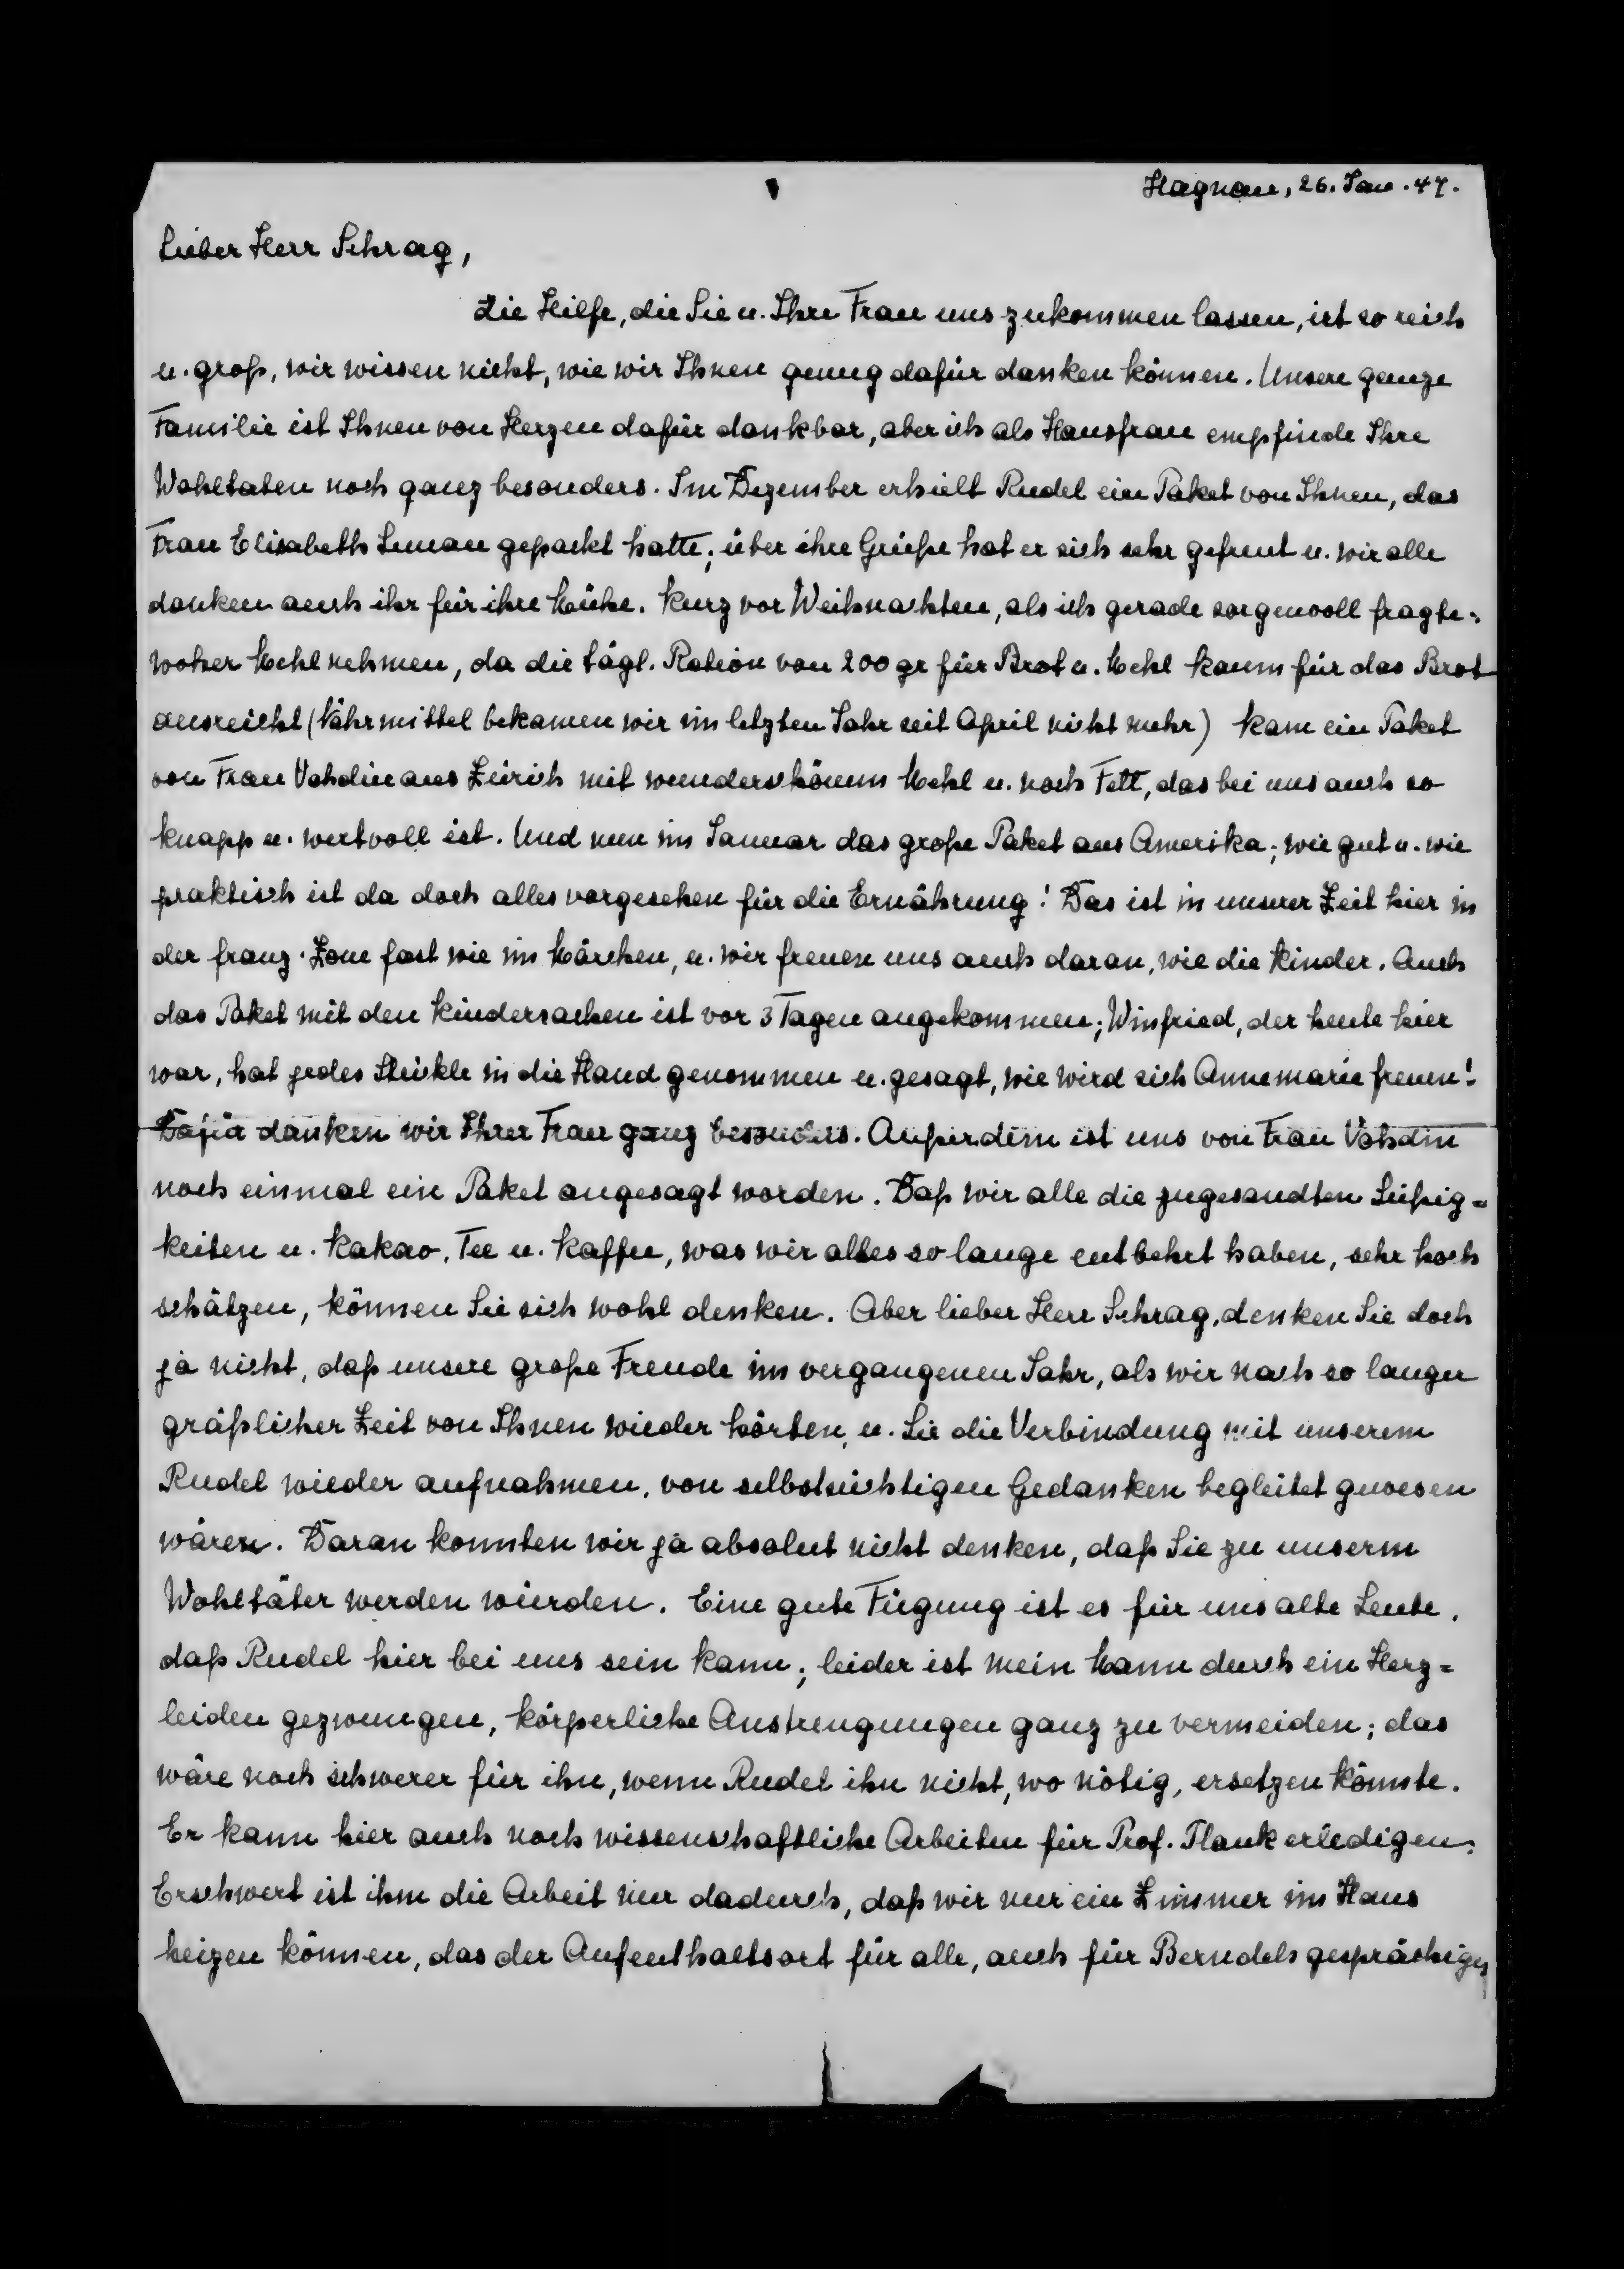 Hagnau, 26. Jan. 47.
Lieber Herr Schrag,
die Hilfe, die Sie u. Ihre Frau uns zukommen lassen, ist so reich
u. groß, wir wissen nicht, wie wir Ihnen genug dafür danken können. Unsere ganze
Familie ist Ihnen von Herzen dafür dankbar, aber ich als Hausfrau empfinde Ihre
Wohltaten noch ganz besonders. Im Dezember erhielt Rudel ein Paket von Ihnen, das
Frau Elisabeth gepackt hatte; über ihre Grüße hat er sich sehr gefreut u. wir alle
danken auch ihr für ihre Mühe. Kurz vor Weihnachten, als ich gerade sorgenvoll fragte:
woher Mehl nehmen, da die tägl. Ration von 200 gr für Brot u. Mehl kaum für das Brot
ausreicht (Nährmittel bekamen wir im letzten Jahr seit April nicht mehr) kam ein Paket
von Frau Vahdin aus Zürich mit wunderschönem Mehl u. noch Fett, das bei uns auch so
knapp u. wertvoll ist. Und nun im Januar das große Paket aus Amerika; wie gut u. wie
praktisch ist da doch alles vorgesehen für die Ernährung! Das ist in unserer Zeit hier in
der franz. Zone fast wie im Märchen, u. wir freuen uns auch daran, wie die Kinder. Auch
das Paket mit den Kindersachen ist vor 3 Tagen angekommen; Winfried, der heute hier
war, hat jedes Stückle in die Hand genommen u. gesagt, wie wird sich Annemarie freuen!
Dafür danken wir Ihrer Frau ganz besonders. Außerdem ist uns von Frau Vahdin
noch einmal ein Paket angesagt worden. Daß wir alle die zugesandten Süßig=
keiten u. Kakao, Tee u. Kaffee, was wir alles so lange entbehrt haben, sehr hoch
schätzen, können Sie sich wohl denken. Aber lieber Herr Schrag, denken Sie doch
ja nicht, daß unsere große Freude im vergangenen Jahr, als wir nach so langer
gräßlicher Zeit von Ihnen wieder hörten, u. Sie die Verbindung mit unserem
Rudel wieder aufnahmen, von selbstsüchtigen Gedanken begleitet gewesen
wären. Daran konnten wir ja absolut nicht denken, daß Sie zu unserm
Wohltäter werden würden. Eine gute Fügung ist es für uns alte Leute,
daß Rudel hier bei uns sein kann; leider ist mein Mann durch ein Herz=
leiden gezwungen, körperliche Anstrengungen ganz zu vermeiden; das
wäre noch schwerer für ihn, wenn Rudel ihn nicht, wo nötig, ersetzen könnte.
Er kann hier auch noch wissenschaftliche Arbeiten für Prof. Plank erledigen.
Erschwert ist ihm die Arbeit nur dadurch, daß wir nur ein Zimmer im Haus
heizen können, das der Aufenthaltsort für alle, auch für Berndels gesprächiges